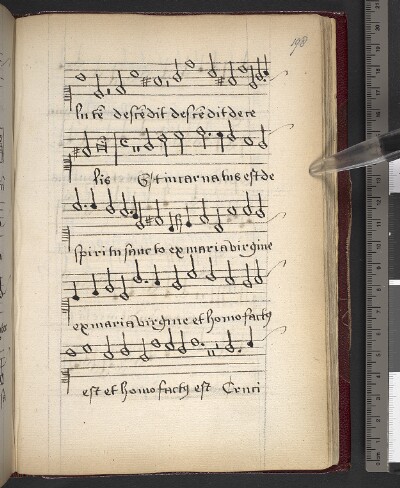 198
lutē descēdit descēdit de ce
lis Et incarnatus est de
spiritu sancto ex maria virgine
ex maria virgine et homo factꝰ
est et homo factꝰ est Cruci